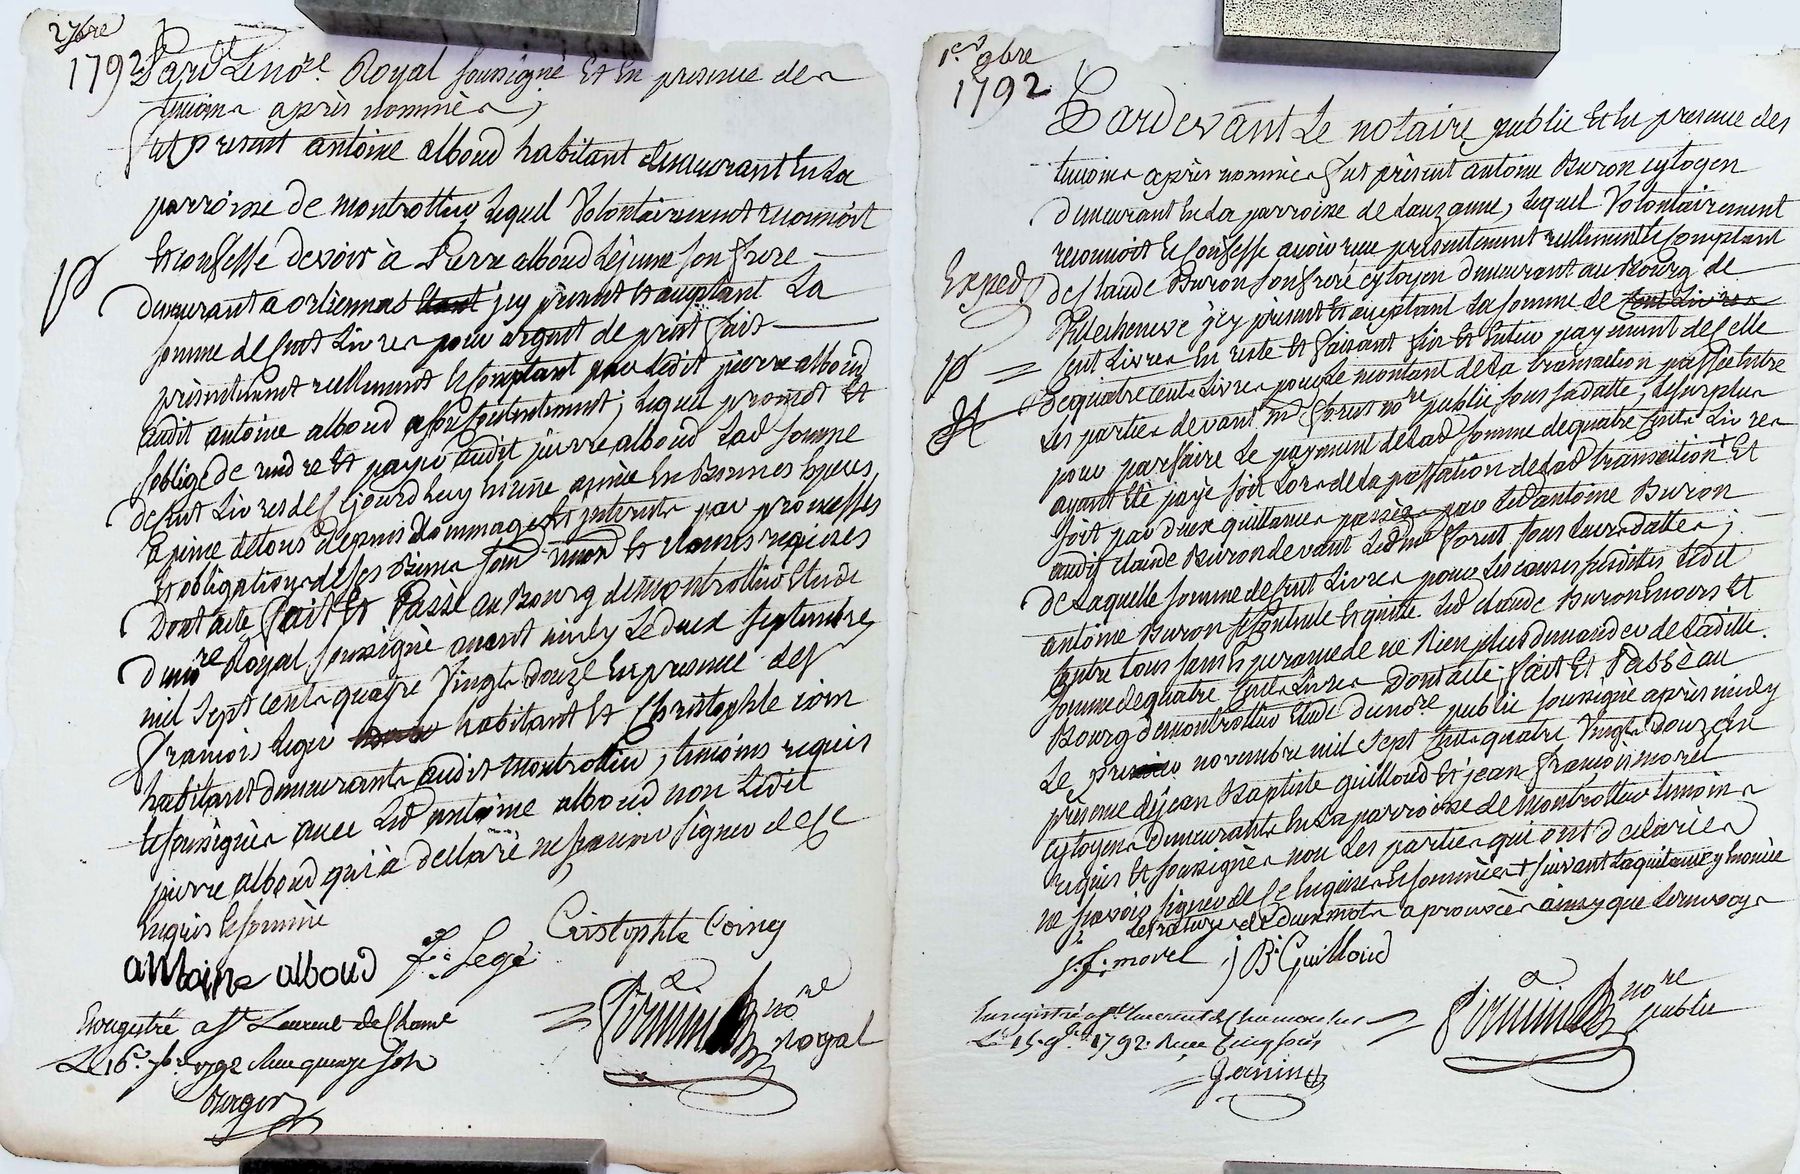 2 7bre
1792
Pardt Le nore. Royal soussigné Et En presence des
temoins après nommés,
fut present antoine alboud habitant demeurant En La
parroisse de montrottier Lequel Volontairement reconnoit
Et confesse devoir à Pierre alboud Lejeune son frere
demeurant a orliennas jcy present Et aceptant La
somme de Cent Livres pour argent de pret fait
présentement réellement Et comptant par Ledit pierre alboud
audit antoine alboud a son contentement, Lequel promet Et
s'oblige de rendre Et payer audit pierre alboud Lad somme
de Cent Livres de Ce jourdhuy En une année En Bonnes Especes
a peine de tous depens dommages Et interets par promesses
Et obligations de ses Biens soum renon Et clauses requises
Dont acte fait Et Passé au Bourg de montrottier Etude
du nore Royal soussigné avant midy Le deux Septembre
mil Sept cents quatre Vingts Douze En presence de Sr
francois Leger habitant Et Christophle coin
habitant demeurants audit montrottier, temoins requis
Et soussignés avec Led antoine alboud non Ledit
pierre alboud qui à declaré ne sçavoir signer de Ce
Enquis Et sommé
antoine alboud
fs. Legé
Cristophle Coing
Enregistré a St Laurent de Chamt
Le 16e 7bre 1792 Reçu quinze sols
nore
royal
1er 9bre
1792
Pardevant Le notaire public Et En presence des
temoins après nommés fut présent antoine Buron cytoyen
demeurant En La parroisse de Lauzanne, Lequel Volontairement
reconnoit Et Confesse avoir reçu présentement réellement Et Comptant
Exped
de Claude Buron son frere cytoyen demeurant au Bourg de
Villecheneve jcy présent Et aceptant La somme de Cent Livres
Cent Livres En reste Et faisant fin Et Entier payement de Celle
de quatre cents Livres pour Le montant de La transaction passée Entre
Les parties devant me forest nore public sous sa datte, Le surplus
pour parfaire Le payement de Lad somme de quatre Cents Livres
ayant Eté payé soit Lors de La passation de Lad transaction + Et
soit par deux quittances passées par Led antoine Buron
audit claude Buron devant Led me forest sous Leurs dattes;
De Laquelle somme de Cent Livres pour Les causes susdittes Ledit
antoine Buron se Contente Et quitte Led claude Buron Envers Et
Contre tous sans y jamais de ne Rien plus demander de Laditte
somme de quatre Cents Livres Dont acte fait Et Passé au
Bourg de montrottier Etude du nore public soussigné après midy
Le premier novembre mil Sept Cents quatre Vingts Douze En
présence de jean Baptiste guilloud Et jean francois morel
cytoyens demeurants En La parroisse de montrottier temoins
requis Et soussignés non Les parties qui ont déclarés
ne sçavoir signer de Ce Enquises Et sommées + suivant La quittance y Enoncée
Les ratures de deux mots aprouvées ainsy que Le renvoy
j. f. morel
j Bte Guilloud
Enregistré a St Laurent de Chamousset
Le 15. 9bre 1792. Reçu Cinq sous
nore
public